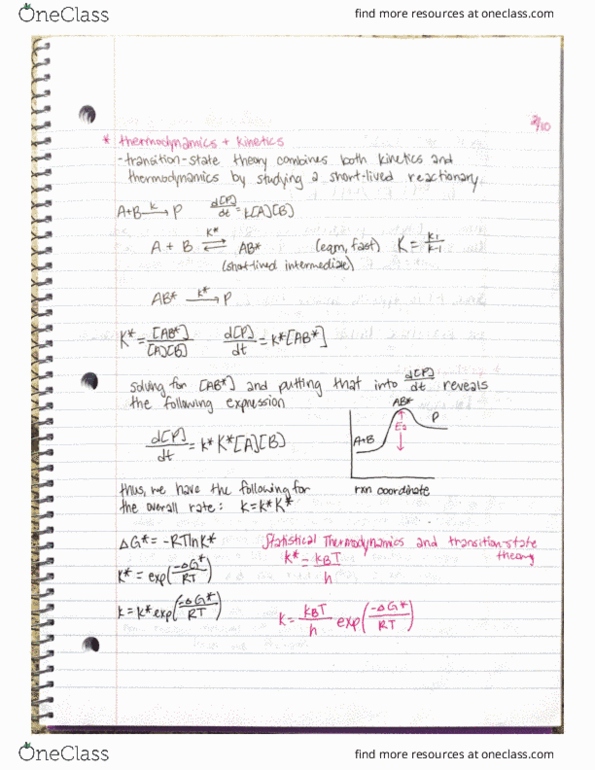 OneClass
find more resources at oneclass.com
2/10
* thermodynamics + kinetics
-transition-state theory combines both kinetics and
thermodynamics by studying a short-lived reactionary
A+B —k→ P d[P]/dt = k[A][B]
A + B ⇌ AB* (eqm, fast) K = k1/k-1
K*
(short-lived intermediate)
AB* —k*→ P
K* = [AB*]/[A][B] d[P]/dt = k*[AB*]
solving for [AB*] and putting that into d[P]/dt reveals
the following expression
d[P]/dt = k* K*[A][B]
AB*
Ea
P
A+B
rxn coordinate
thus, we have the following for
the overall rate: k = k* K*
ΔG* = -RTlnK*
K* = exp(-ΔG*/RT)
k = k* exp(-ΔG*/RT)
Statistical Thermodynamics and transition-state
theory
k* = kBT/h
k = kBT/h exp(-ΔG*/RT)
OneClass
find more resources at oneclass.com